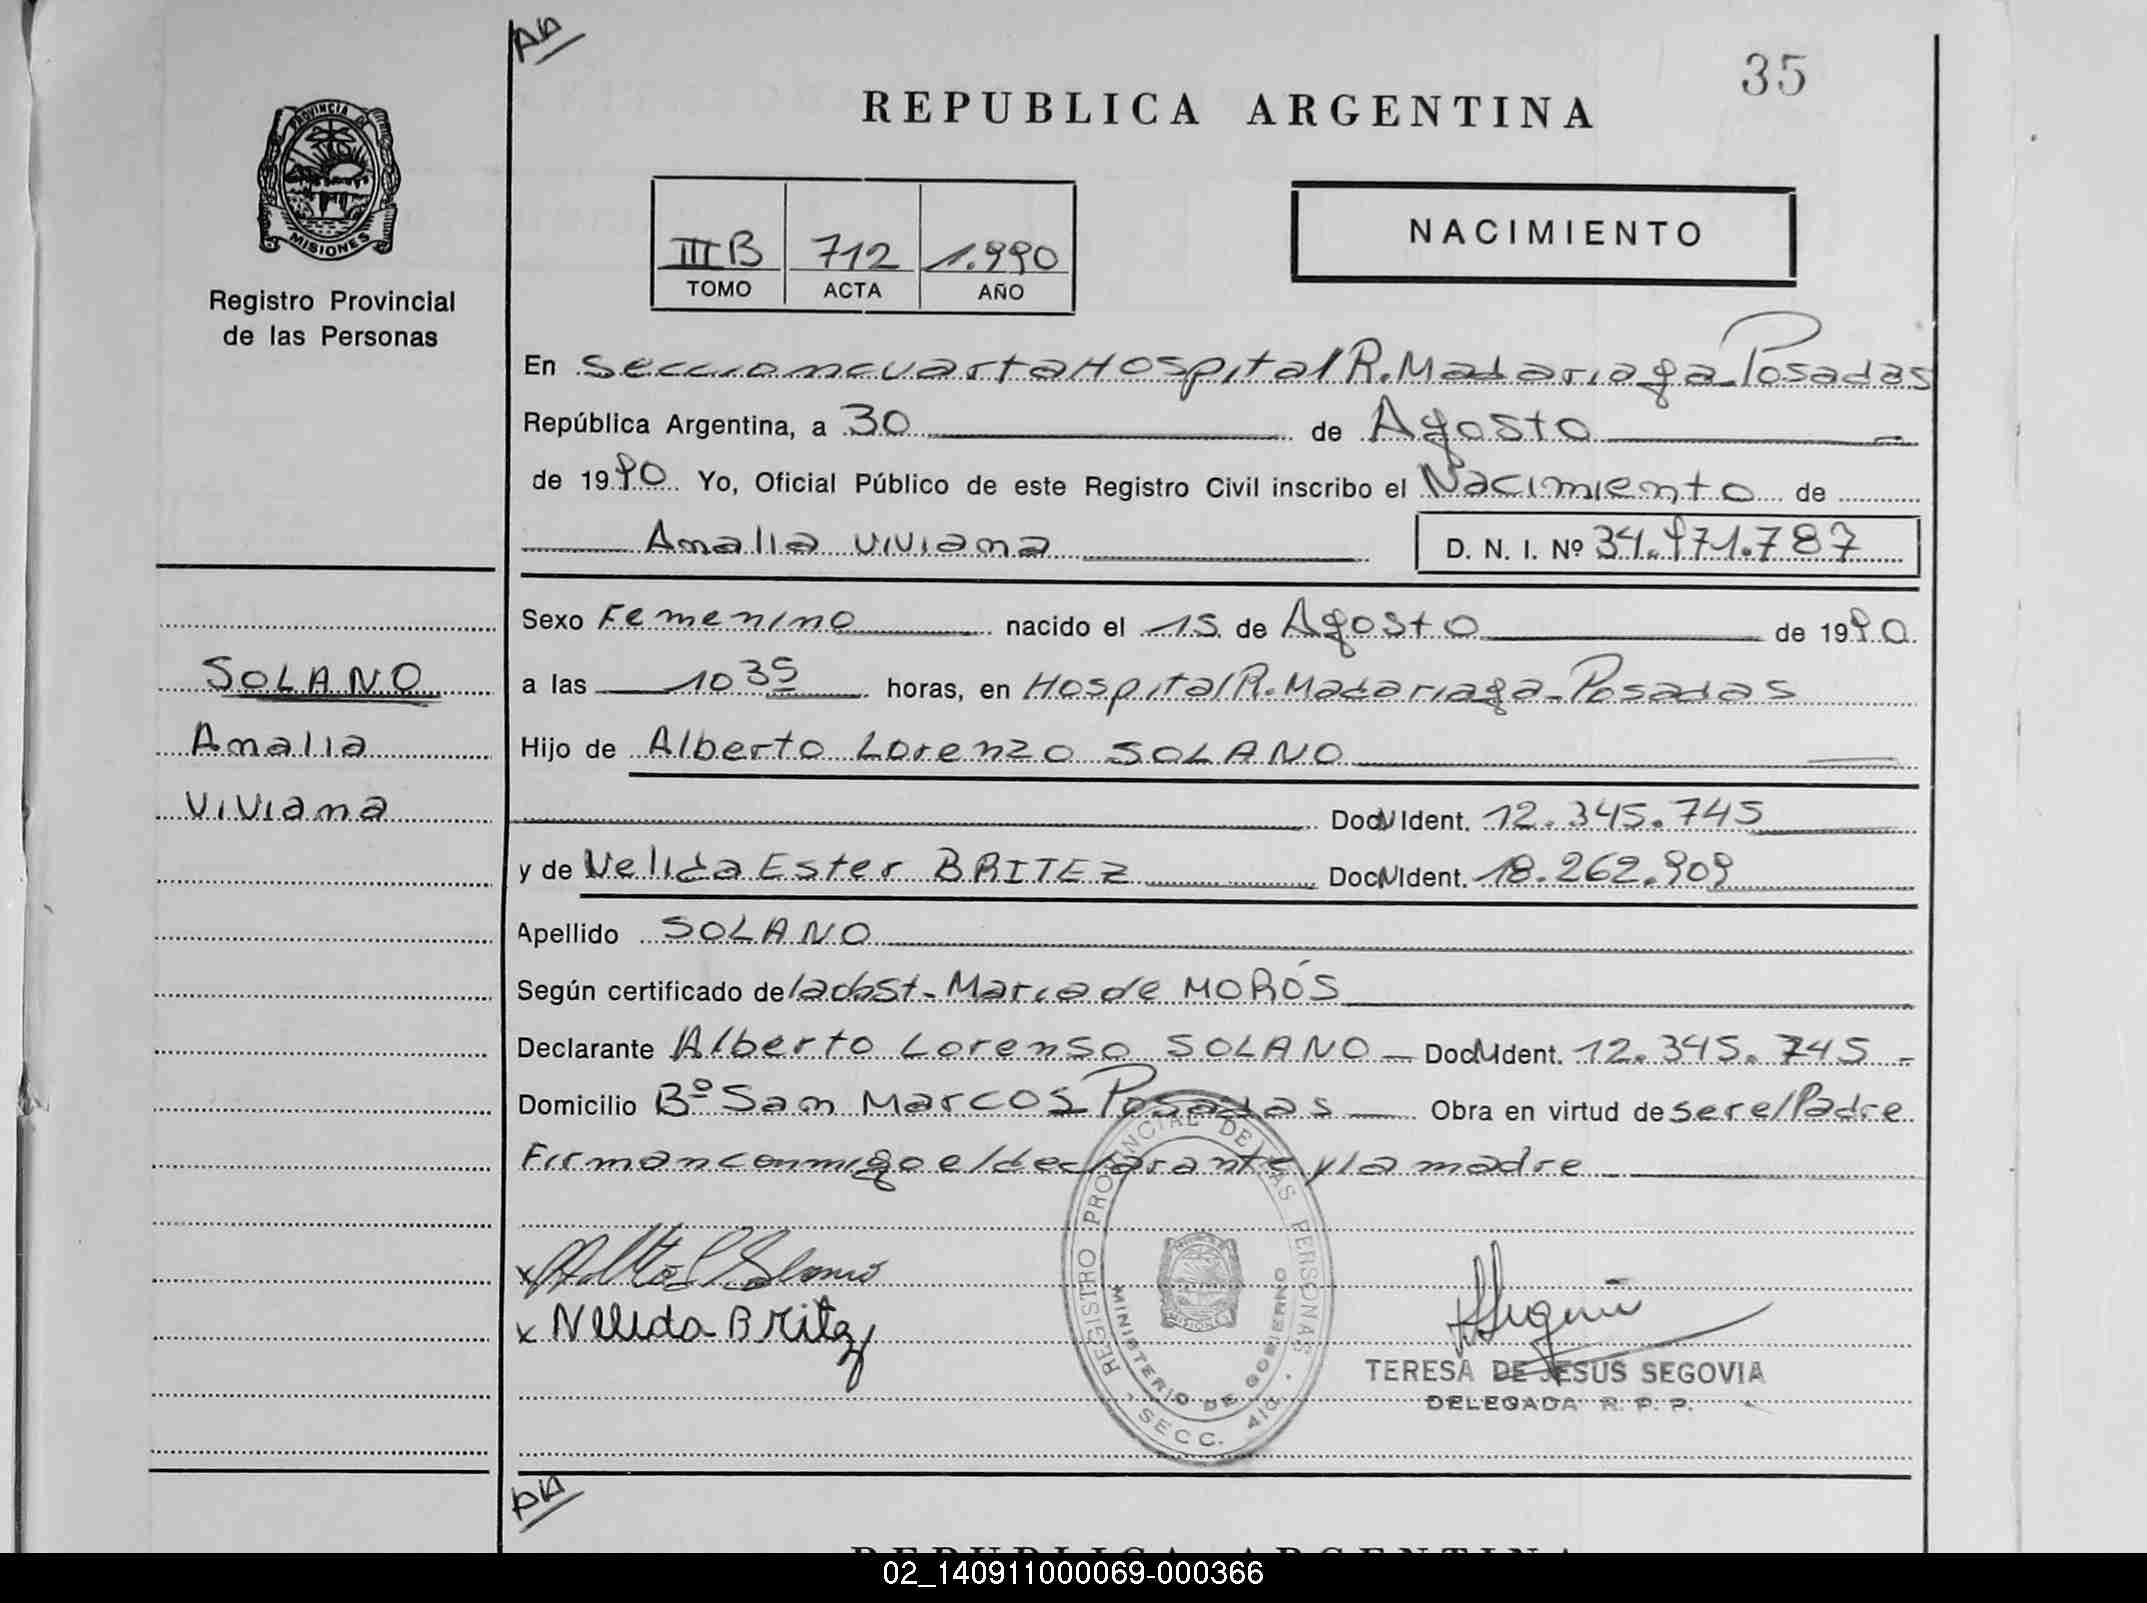 AA
35
REPUBLICA ARGENTINA
PROVINCIA DE MISIONES
Registro Provincial
de las Personas
III B 712 1.990
TOMO ACTA AÑO
NACIMIENTO
En Seccion cuarta Hospital R. Madariaga - Posadas
República Argentina, a 30 de Agosto
de 1990 Yo, Oficial Público de este Registro Civil inscribo el Nacimiento de
Amalia Viviana D. N. I. Nº 34.971.787
Sexo Femenino nacido el 15 de Agosto de 1990
SOLANO
a las 10 35 horas, en Hospital R. Madariaga - Posadas
Amalia
Hijo de Alberto Lorenzo SOLANO
Viviana
Doc N Ident. 12.345.745
y de Nelida Ester BRITEZ Doc N Ident. 18.262.909
Apellido SOLANO
Según certificado de la obst - Maria de MORÓS
Declarante Alberto Lorenso SOLANO - Doc N Ident. 12.345.745 -
Domicilio Bº San Marcos Posadas Obra en virtud de ser el Padre
Firman conmigo el declarante y la madre
x Nelida Britez
REGISTRO PROVINCIAL DE LAS PERSONAS
MINISTERIO DE GOBIERNO
SECC. 4ta.
MISIONES
TERESA DE JESUS SEGOVIA
DELEGADA R. P. P.
AA
REPUBLICA ARGENTINA
02_140911000069-000366